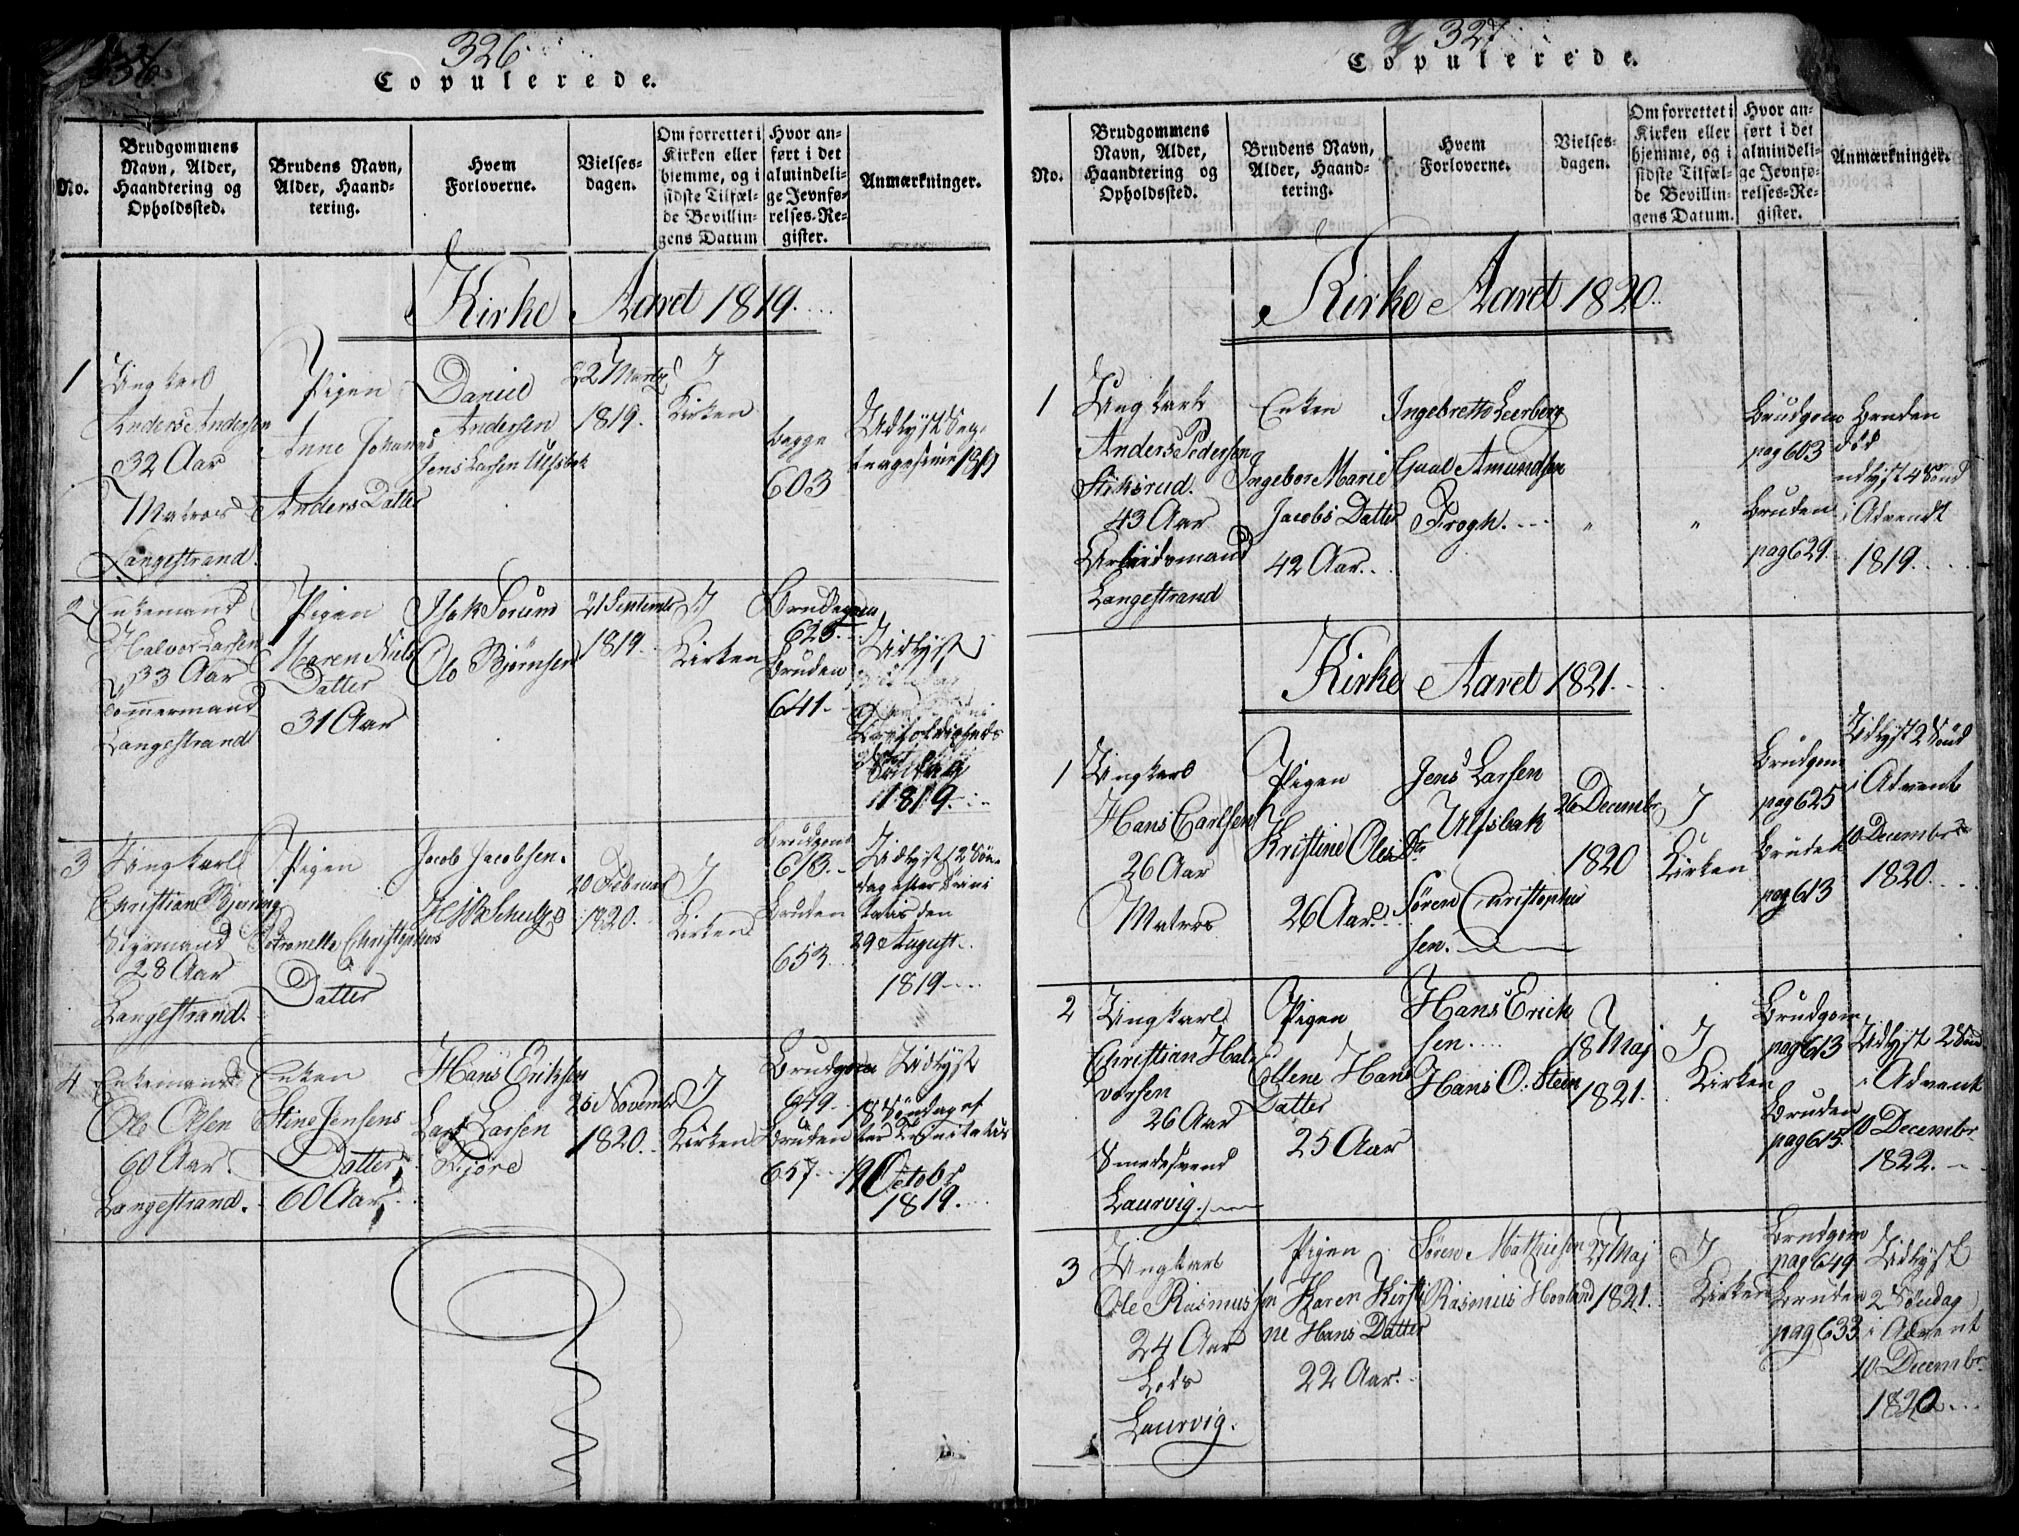 326
Copulerede.
No.
Brudgommens
Navn, Alder,
Haandtering og
Opholdssted.
Brudens Navn,
Alder, Haand-
tering.
Hvem
Forloverne.
Vielses-
dagen.
Om forrettet i
Kirken eller
hjemme, og i
sidste Tilfæl-
de Bevillin-
gens Datum
Hvor an-
ført i det
almindeli-
ge Jevnfø-
relses-Re-
gister.
Anmærkninger.
Kirke Aaret 1819.
1
Ungkarl
Anders Andersen
32 Aar
Matros
Langestrand.
Pigen
Anne Johannes
Anders Datter
Daniel
Andersen
Jens Larsen Ulfsbak
22 Martz
1819.
I
Kirken
begge
603
Udlyst Sep-
tuagesima 1819
2
Enkemand
Halvor Larsen
33 Aar
Tømmermand
Langestrand
Pigen
Maren Niels
Datter
31 Aar
Isak
Ole Bjørnsen
21 September
1819.
I
Kirken
Brudgom
625.
Bruden
641.
Udlyst
Søndag
1819
3
Ungkarl
Christian Bjerring
Styrmand
28 Aar
Langestrand.
Pigen
Petronelle Christophers
Datter
Jacob Jacobsen.
Schultz
20 Februar
1820.
I
Kirken
Brudgom
613.
Bruden
653.
Udlyst 2 Søn-
dag efter Trini
tatis den
29 August
1819
4
Enkemand
Ole Olsen
60 Aar.
Langestrand.
Enken
Stine Jensens
Datter
60 Aar
Hans Eriksen
Lars Larsen
Kjøre
25 Novembr
1820.
I
Kirken
Brudgom
649.
Bruden
657.
Udlyst
18 Søndag ef
ter Trinitatis
19 Octobr
1819.
327
Copulerede.
No.
Brudgommens
Navn, Alder,
Haandtering og
Opholdssted.
Brudens Navn,
Alder, Haand-
tering.
Hvem
Forloverne.
Vielses-
dagen.
Om forrettet i
Kirken eller
hjemme, og i
sidste Tilfæl-
de Bevillin-
gens Datum.
Hvor an-
ført i det
almindeli-
ge Jevnfø-
relses-Re-
gister.
Anmærkninger.
Kirke Aaret 1820.
1
Ungkarl
Anders Pedersen
Stiksrud.
43 Aar
Arbeidsmand
Langestrand
Enken
Ingebor Marie
Jacobs Datter
42 Aar.
Ingebrett Leerberg
Gunl Amundsen
Progh.
"
"
Brudgom
pag 603
Bruden
pag 629.
død
udlyst 4 Sønd
i Advendt
1819.
Kirke Aaret 1821.
1
Ungkarl
Hans Carlsen
26 Aar
Matros
Pigen
Kristine Oles Dr
26 Aar.
Jens Larsen
Ulfsbak
Søren Christopher
sen.
26 Decembr
1820
I
Kirken
Brudgom
pag 625
Bruden
pag 613
Udlyst 2 Sønd
i Advent
10 Decembr
1820.
2
Ungkarl
Christian Hal-
vorsen
26 Aar
Smedesvend
Laurvig.
Pigen
Ellene Hans
Datter
25 Aar
Hans Erick
sen.
Hans O. Steen
18 Maj
1821.
I
Kirken
Brudgom
pag 613
Bruden
pag 615.
Udlyst 2 Sønd.
i Advent
10 Decembr
1822.
3
Ungkarl
Ole Rasmussen
24 Aar
Lods
Laurvig.
Pigen
Karen Kirsti
ne Hans Datter
22 Aar.
Søren Mathiesen
Rasmus Hovland
27 Maj
1821.
I
Kirken
Brudgom
pag 649
Bruden
pag 633
Udlyst
2 Søndag
i Advent
10 Decembr
1820